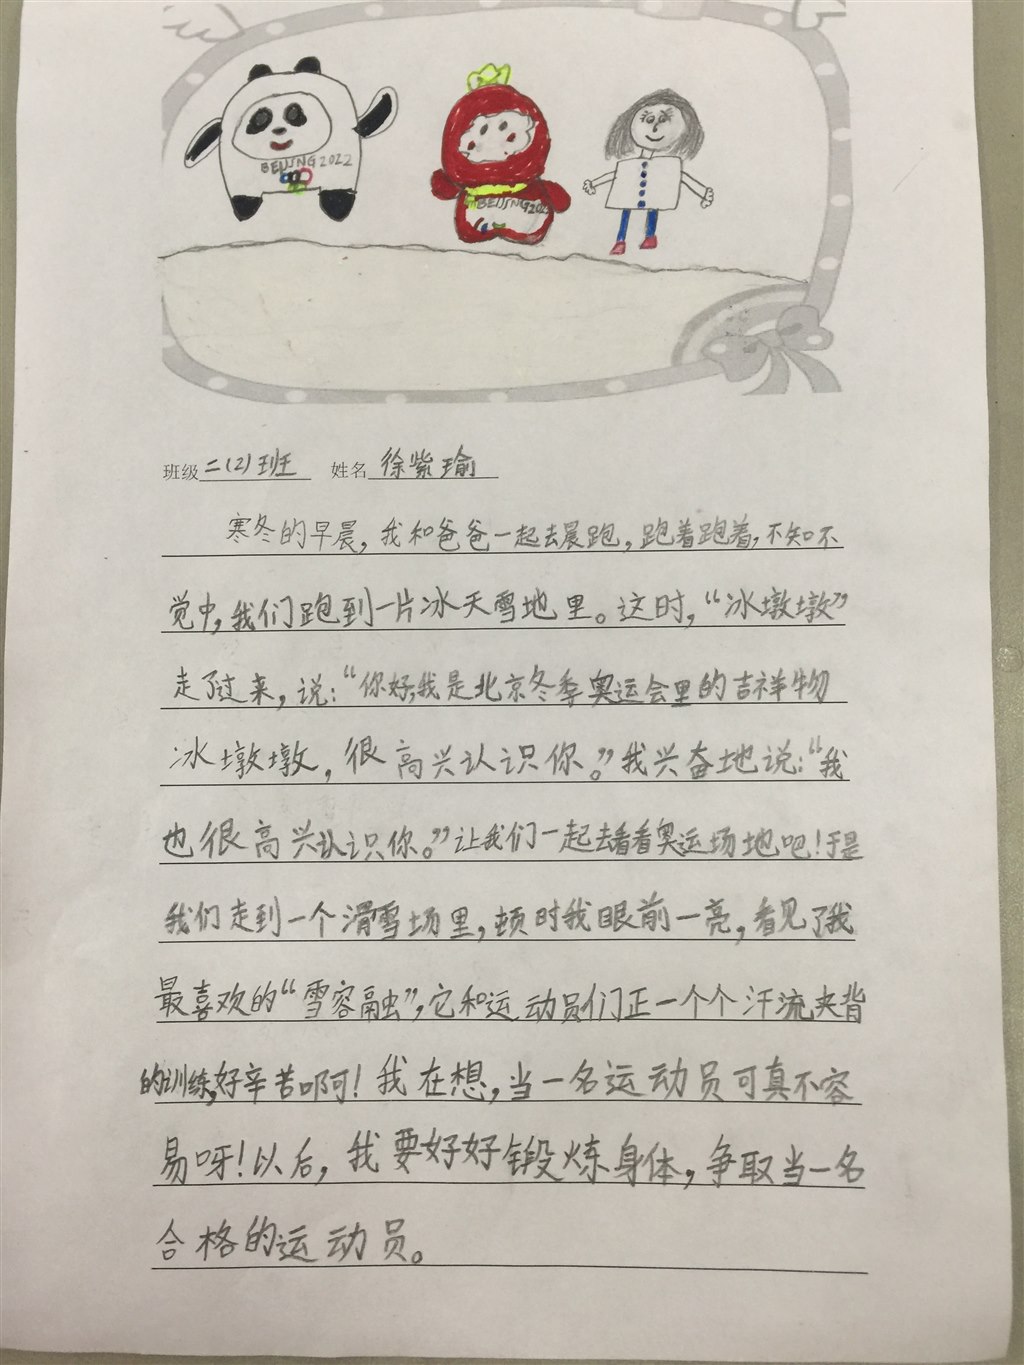 BEIJING 2022
BEIJING 2022
班级 二(2)班 姓名 徐紫瑜
寒冬的早晨，我和爸爸一起去晨跑，跑着跑着，不知不
觉中，我们跑到一片冰天雪地里。这时，“冰墩墩”
走了过来，说：“你好，我是北京冬季奥运会里的吉祥物
冰墩墩，很高兴认识你。”我兴奋地说：“我
也很高兴认识你。”让我们一起去看看奥运场地吧！于是
我们走到一个滑雪场里，顿时我眼前一亮，看见了我
最喜欢的“雪容融”，它和运动员们正一个个汗流夹背
的训练，好辛苦啊！我在想，当一名运动员可真不容
易呀！以后，我要好好锻炼身体，争取当一名
合格的运动员。